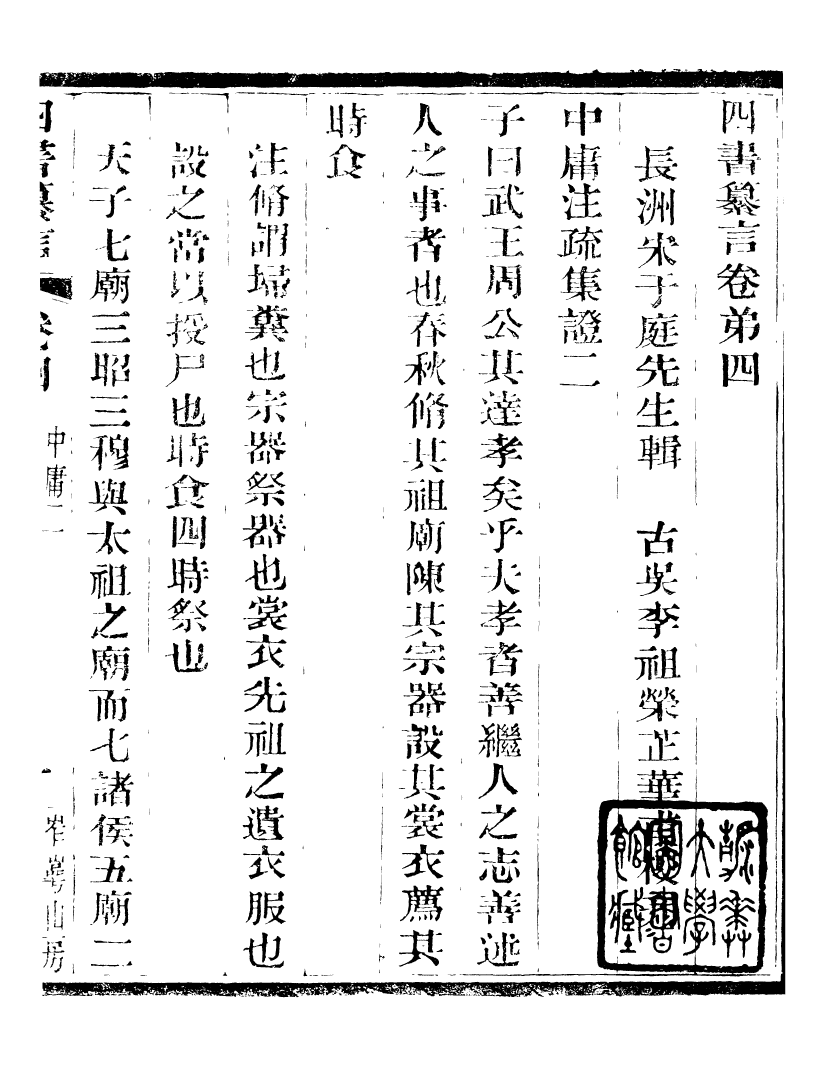 四書纂言卷弟四
長洲宋于庭先生輯　古吳李祖榮芷華
中庸注疏集證二
子曰武王周公其達孝矣乎夫孝者善繼人之志善述
人之事者也春秋脩其祖廟陳其宗器設其裳衣薦其
時食
注脩謂埽糞也宗器祭器也裳衣先祖之遺衣服也
設之當以授尸也時食四時祭也
天子七廟三昭三穆與太祖之廟而七諸侯五廟二
四書纂言　卷四　中庸二　一　山房